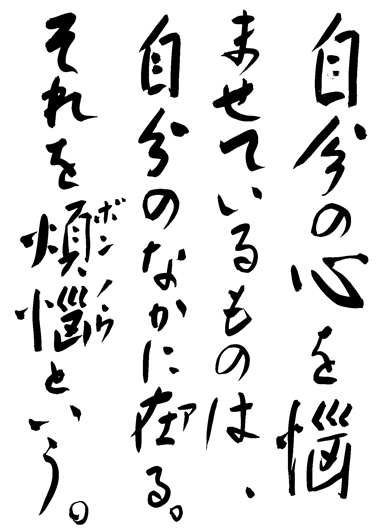 自分の心を悩
ませているものは、
自分のなかに在る。
それを煩悩という。
ア
ボンノウ